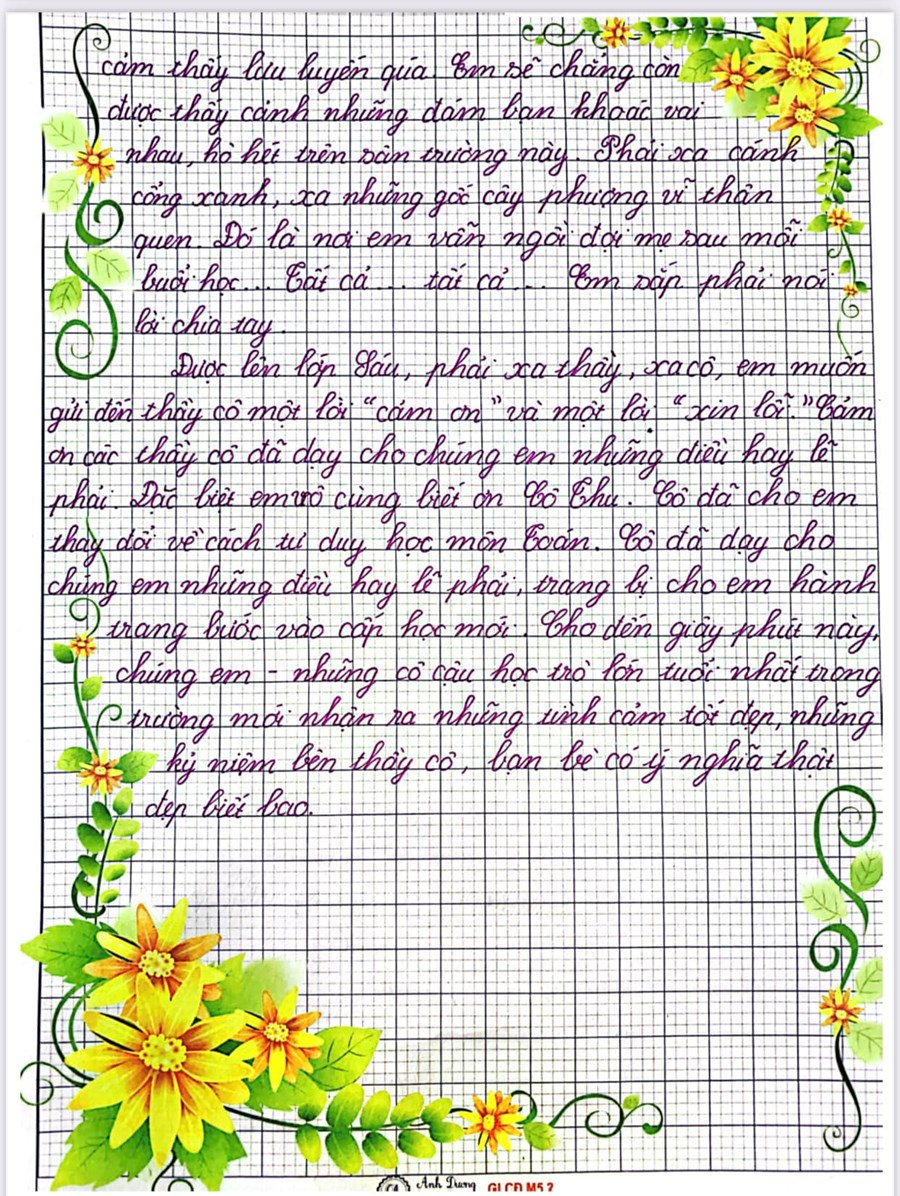 cảm thấy lưu luyến qúa. Em sẽ chẳng còn
được thấy cảnh những đám bạn khoác vai
nhau, hò hét trên sân trường này. Phải xa cánh
cổng xanh, xa những gốc cây phượng vĩ thân
quen. Đó là nơi em vẫn ngồi đợi mẹ sau mỗi
buổi học... Tất cả... tất cả... Em sắp phải nói
lời chia tay.
Được lên lớp Sáu, phải xa thầy, xa cô, em muốn
gửi đến thầy cô một lời "cảm ơn" và một lời "xin lỗi." Cảm
ơn các thầy cô đã dạy cho chúng em những điều hay lẽ
phải. Đặc biệt em vô cùng biết ơn Cô Thu. Cô đã cho em
thay đổi về cách tư duy học môn Toán. Cô đã dạy cho
chúng em những điều hay lẽ phải, trang bị cho em hành
trang bước vào cấp học mới. Cho đến giây phút này,
chúng em - những cô cậu học trò lớn tuổi nhất trong
trường mới nhận ra những tình cảm tốt đẹp, những
kỷ niệm bên thầy cô, bạn bè có ý nghĩa thật
đẹp biết bao.
Ánh Dương GLCĐ M5.2